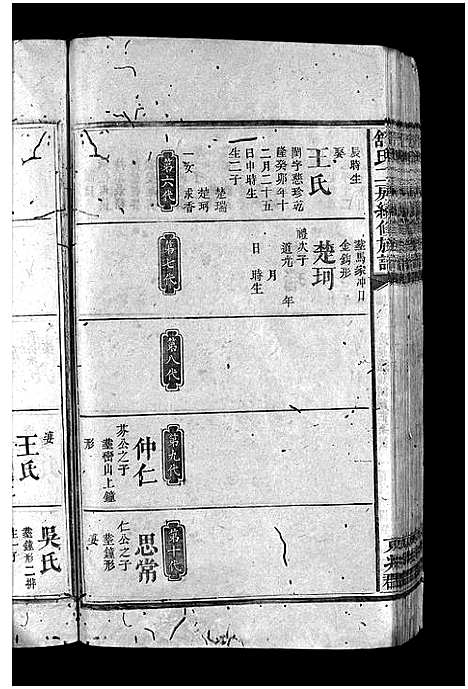 舒氏二房續修族譜
長時生
娶
王氏
閨字慈珍乾
隆癸卯年十
二月二十五
日申時生
生二子
楚瑞
楚珂
一女 求香
第六代
葬馬家冲月
金鈎形
楚珂
禮次子
道光 年
月
日 時生
第七代
第八代
仲仁
芬公之子
葬密山上鐘
形
第九代
思常
仁公之子
葬鐘形
娶
第十代
娶
王氏
吳氏
葬鐘形二排